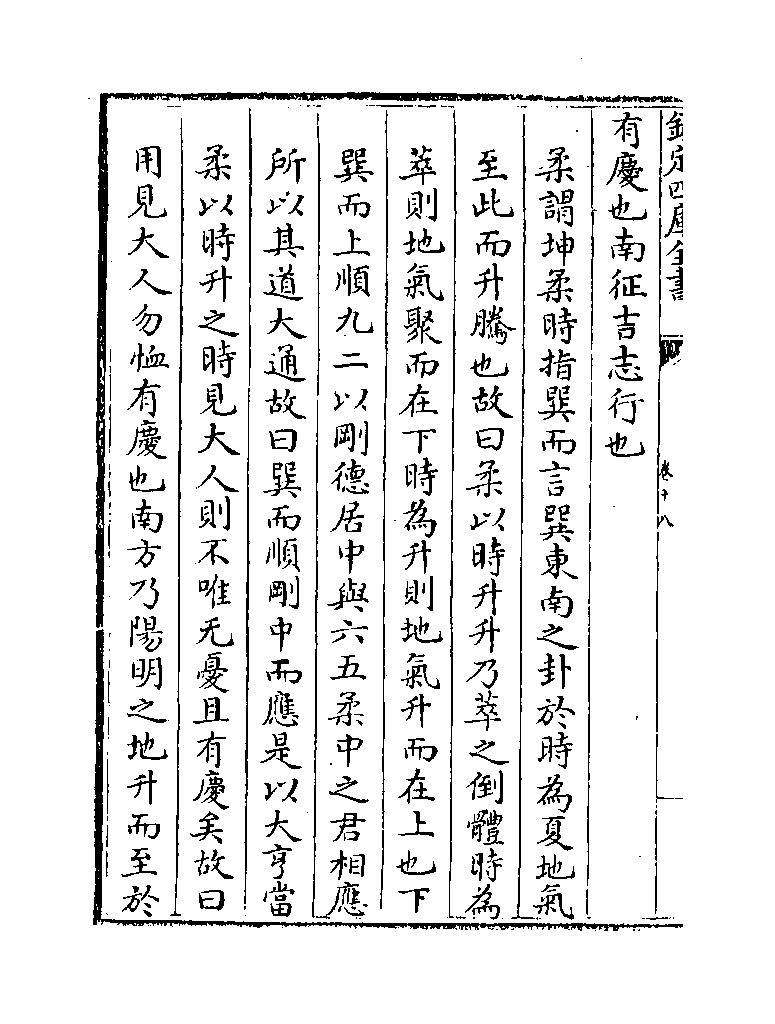 欽定四庫全書
卷十八
有慶也南征吉志行也
柔謂坤柔時指巽而言巽東南之卦於時為夏地氣
至此而升騰也故曰柔以時升升乃萃之倒體時為
萃則地氣聚而在下時為升則地氣升而在上也下
巽而上順九二以剛德居中與六五柔中之君相應
所以其道大通故曰巽而順剛中而應是以大亨當
柔以時升之時見大人則不唯无憂且有慶矣故曰
用見大人勿恤有慶也南方乃陽明之地升而至於